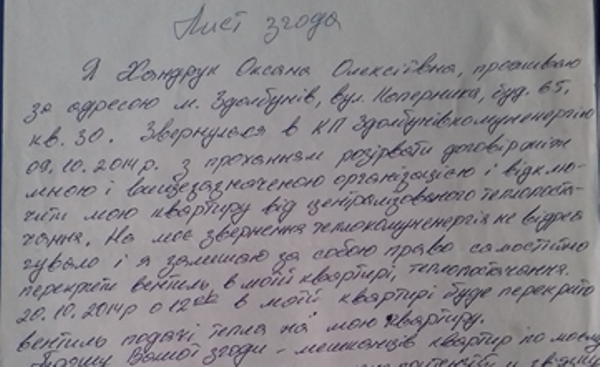 Лист згода
Я Хандрук Оксана Олексіївна, проживаю
за адресою м. Здолбунів, вул. Коперника, буд. 65,
кв. 30. Звернулася в КП Здолбунівкомуненергію
09.10.2014р. з проханням розірвати договір між
мною і вищезазначеною організацією і відклю-
чити мою квартиру від централізованого теплопоста-
чання. На моє звернення теплокомуненергія не відреа
гувало і я залишаю за собою право самостійно
перекрити вентиль, в моїй квартирі, теплопостачання.
20.10.2014р о 12 00 в моїй квартирі буде перекрито
вентиль подачі тепла на мою квартиру.
Прошу Вашої згоди - мешканців квартир по моєму